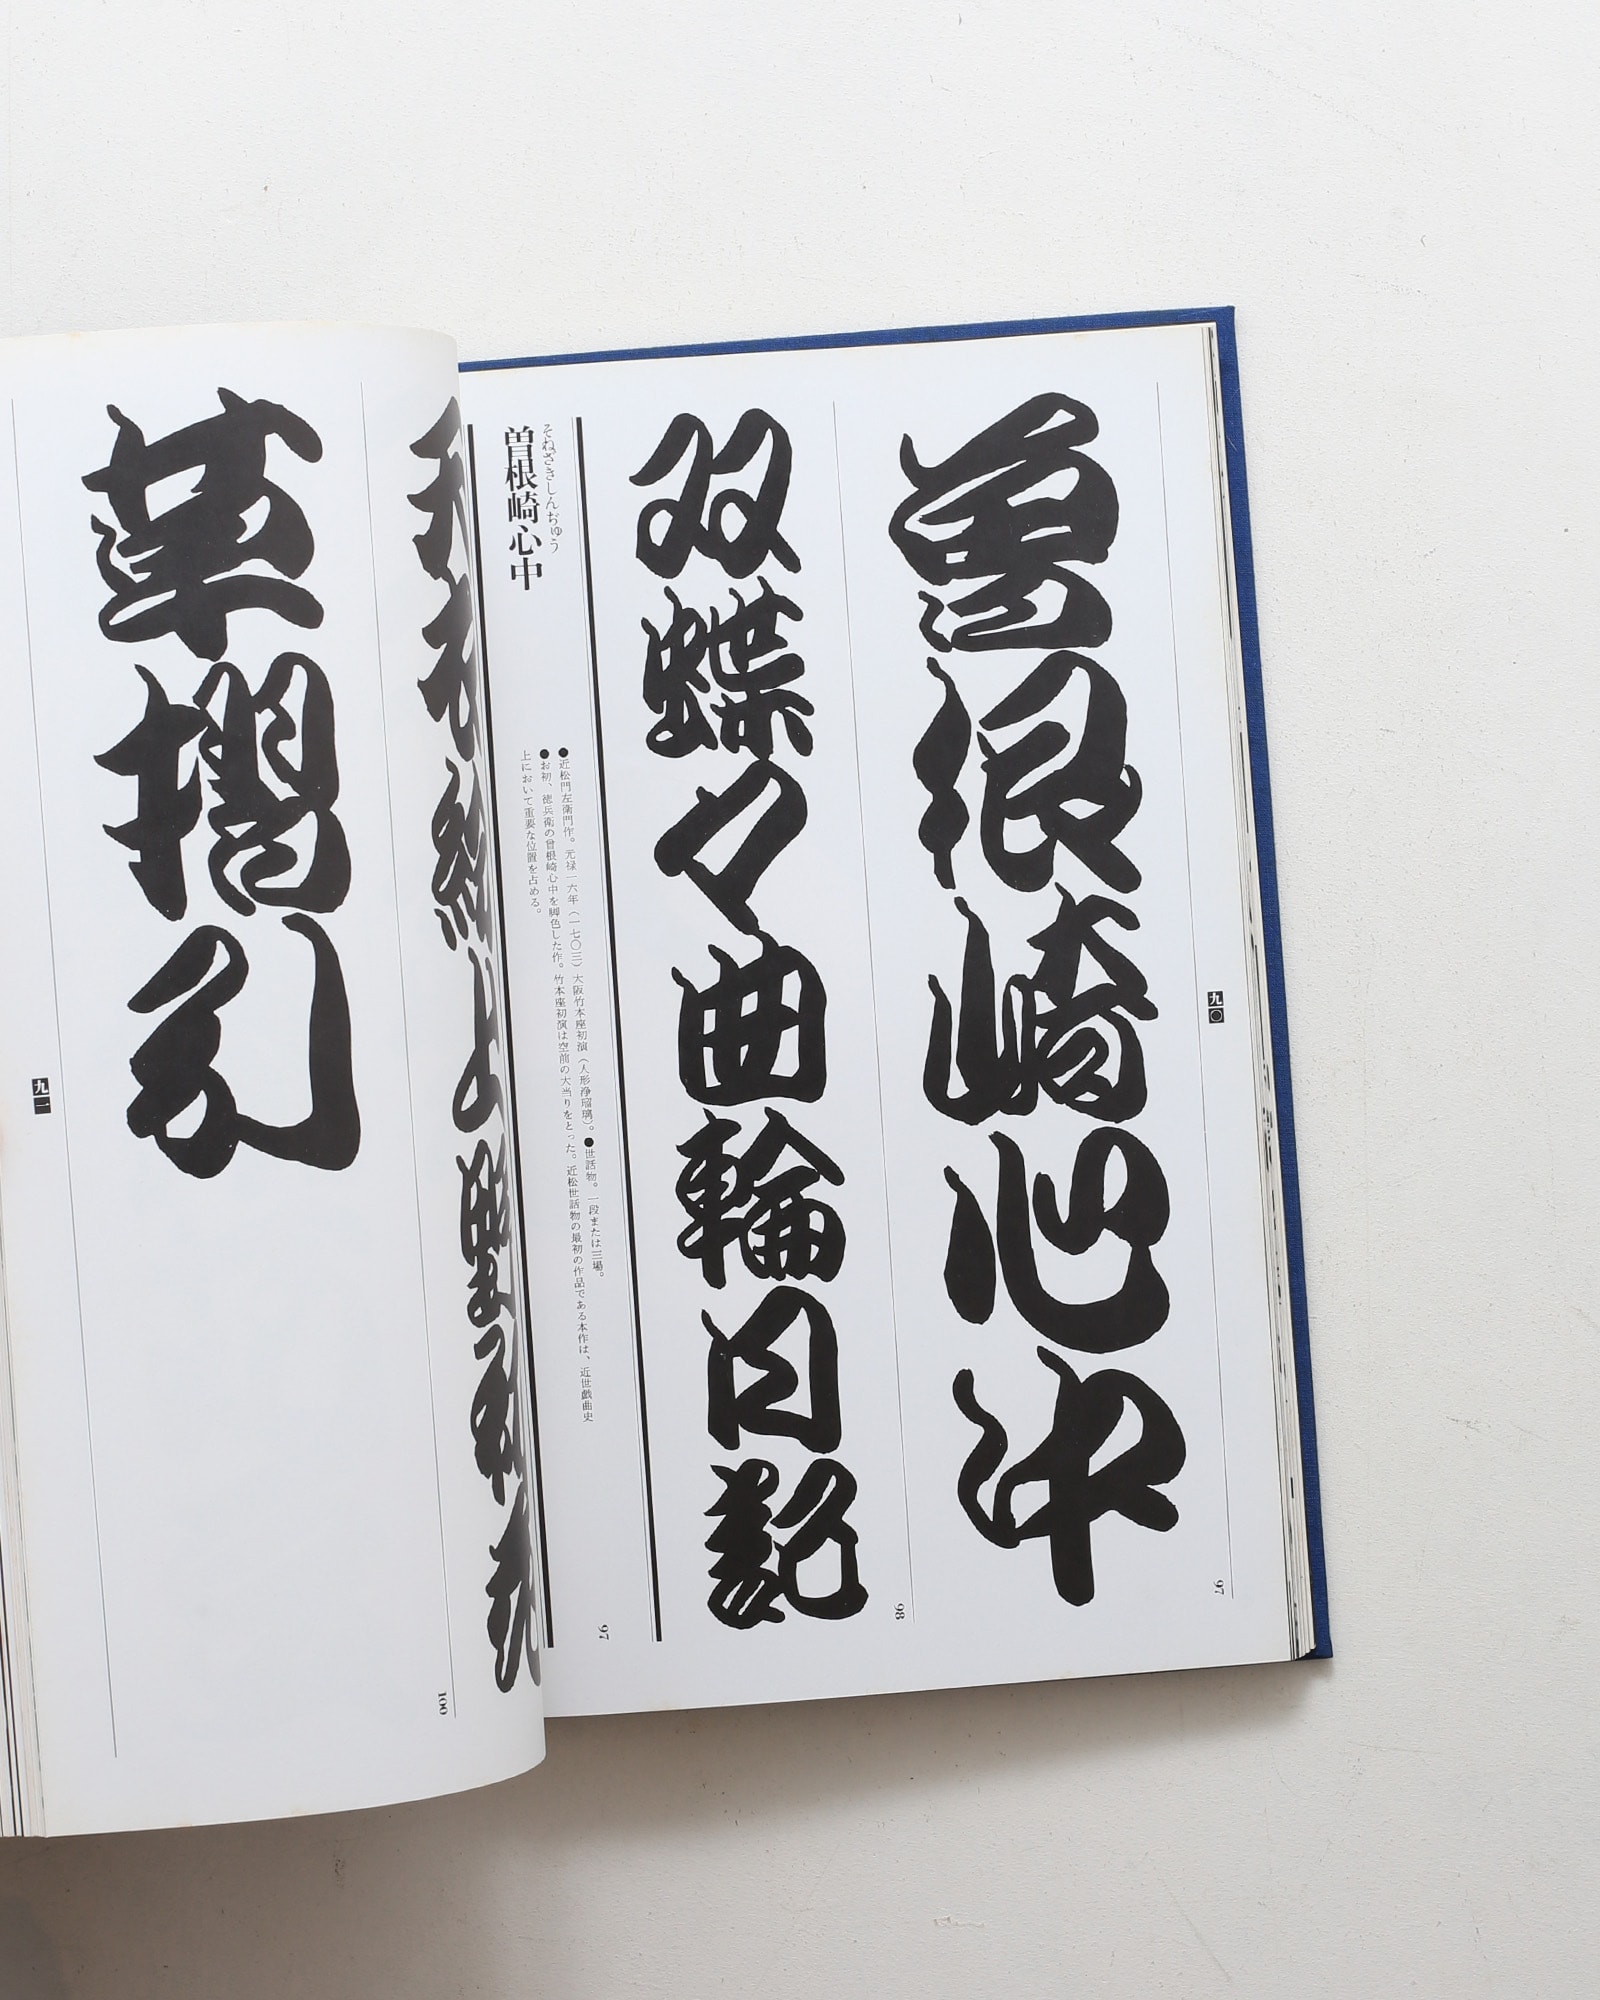 九〇
曽根崎心中
97
双蝶々曲輪日記
98
そねざきしんぢゅう
曽根崎心中
●近松門左衛門作。元禄一六年（一七〇三）大阪竹本座初演（人形浄瑠璃）。●世話物。一段または三場。
●お初、徳兵衛の曽根崎心中を脚色した作。竹本座初演は空前の大当りをとった。近松世話物の最初の作品である本作は、近世戯曲史
上において重要な位置を占める。
97
100
草摺引
九一